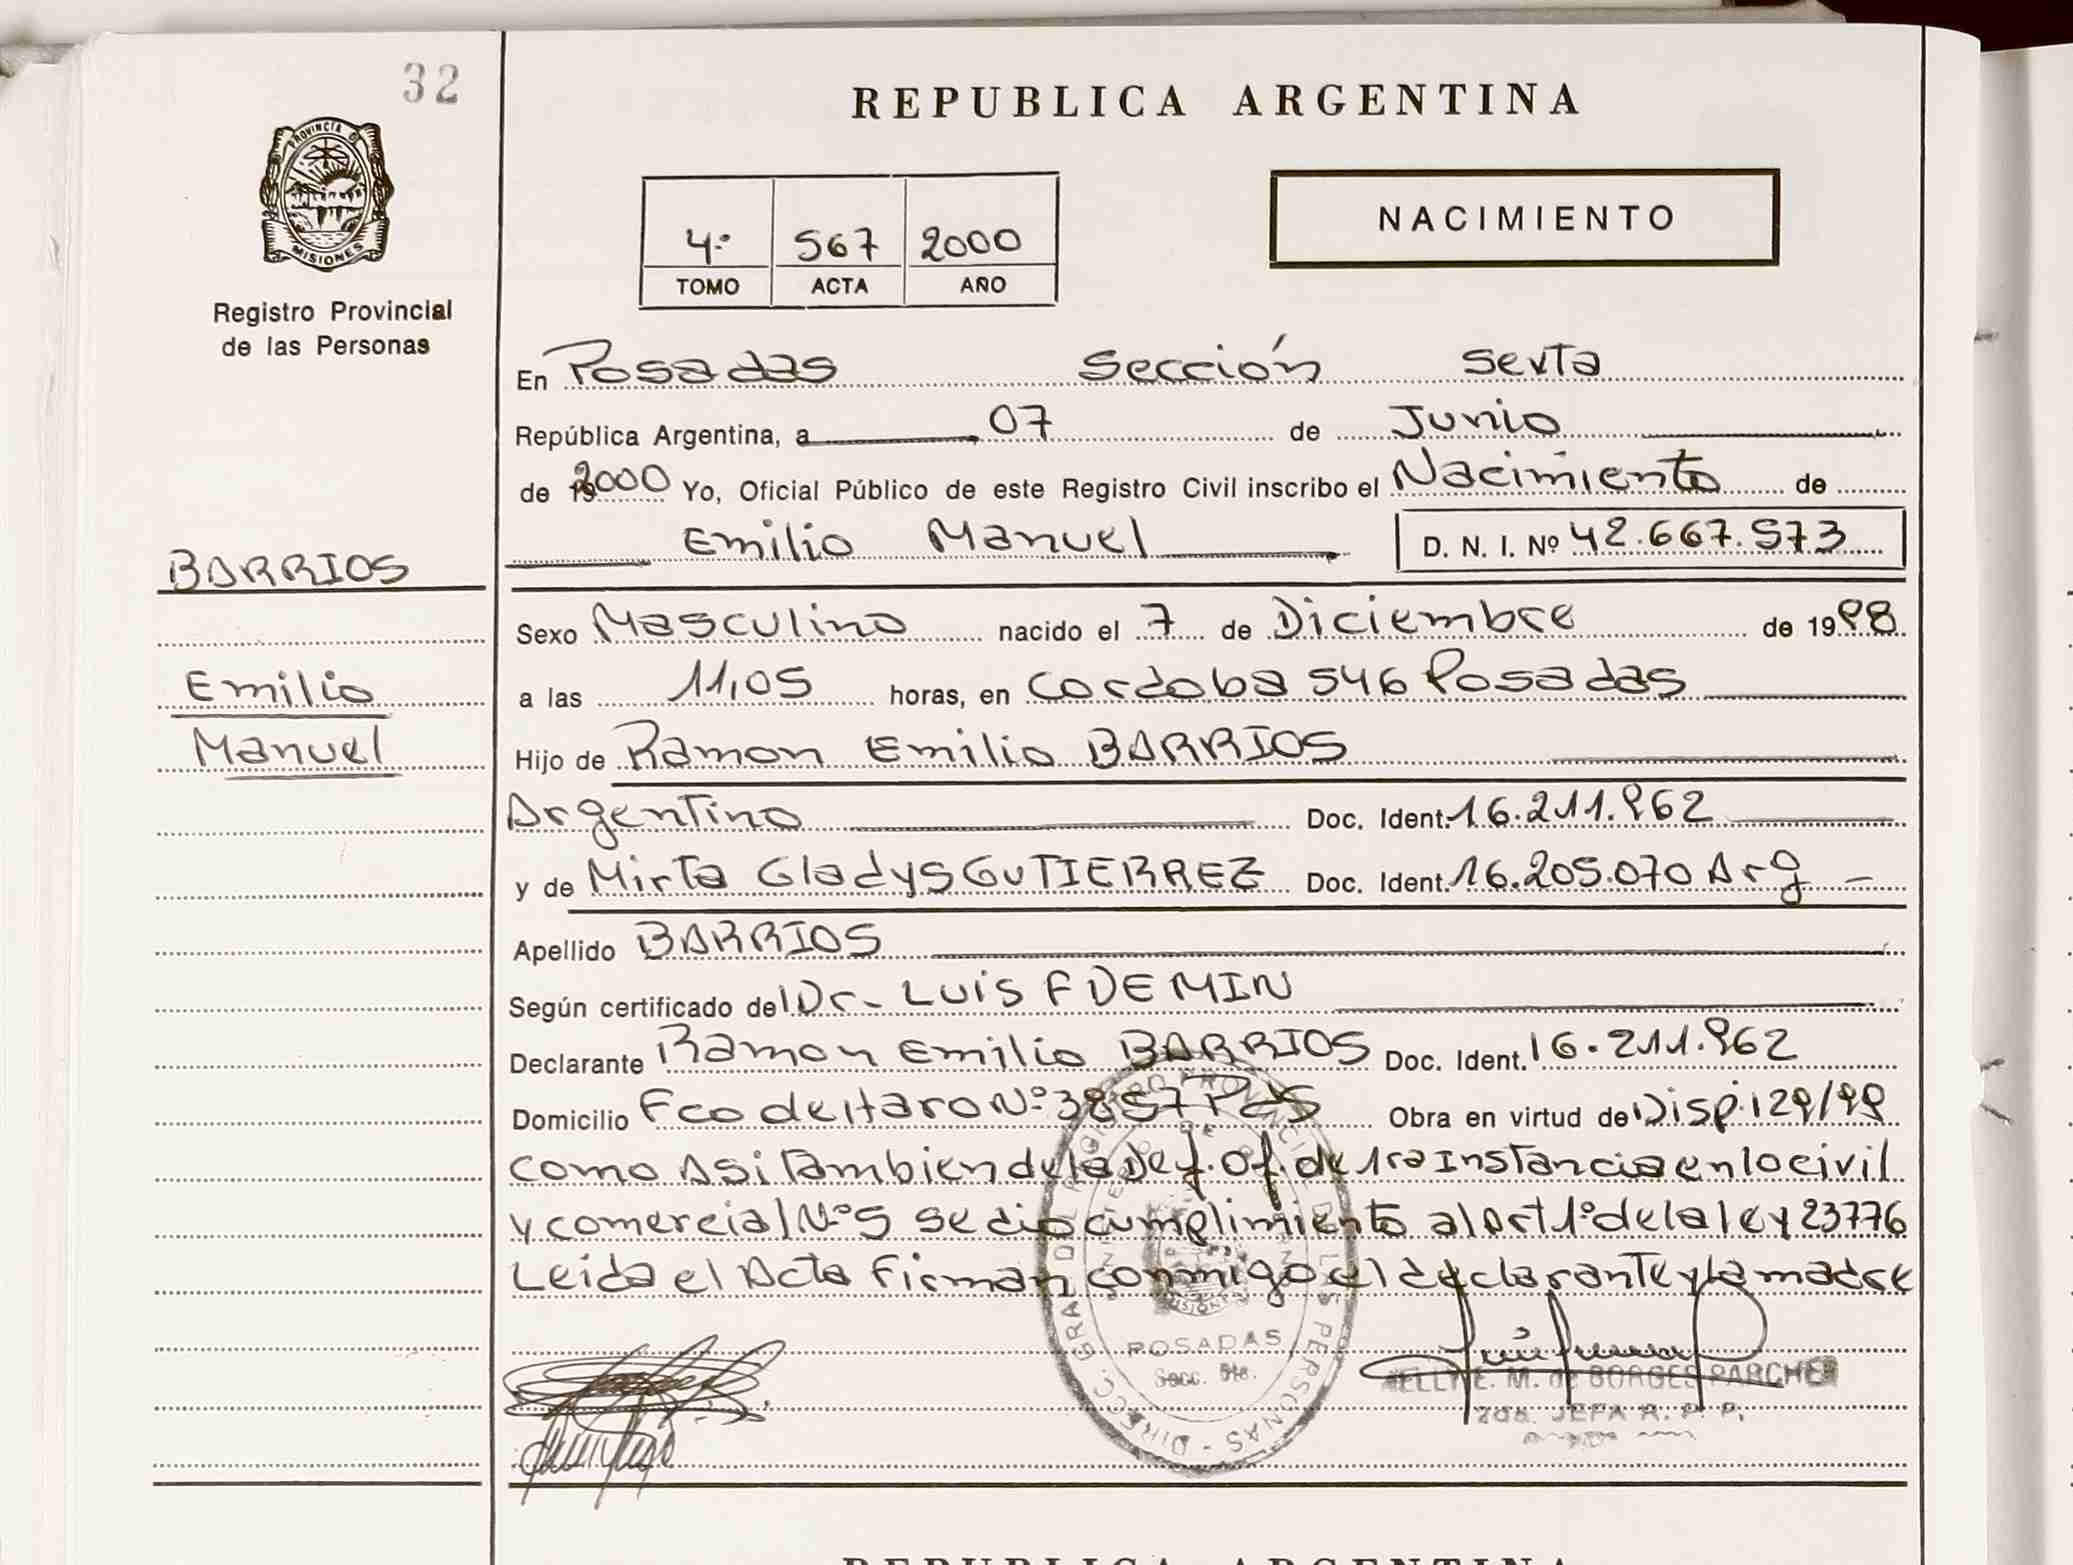 32
PROVINCIA DE
MISIONES
Registro Provincial
de las Personas
REPUBLICA ARGENTINA
4º 567 2000
TOMO ACTA AÑO
NACIMIENTO
En Posadas Sección Sexta
República Argentina, a 07 de Junio
de 2000 Yo, Oficial Público de este Registro Civil inscribo el Nacimiento de
Emilio Manuel D. N. I. Nº 42.667.573
BARRIOS
Emilio
Manuel
Sexo Masculino nacido el 7 de Diciembre de 1998
a las 11,05 horas, en Cordoba 546 Posadas
Hijo de Ramon Emilio BARRIOS
Argentino Doc. Ident. 16.211.962
y de Mirta Gladys GUTIERREZ Doc. Ident. 16.205.070 Arg
Apellido BARRIOS
Según certificado del Dr. LUIS F DEMIN
Declarante Ramon Emilio BARRIOS Doc. Ident. 16.211.962
Domicilio Fco de Haro Nº 3857 Pdas Obra en virtud de Disp. 129/99
como Asi Tambien de la Def. Of. de 1ra Instancia en lo civil
y comercial Nº 5 se dio cumplimiento al Art 1º de la ley 23776
Leida el Acta Firman conmigo el declarante y la madre
DIRECC. GRAL DEL REGISTRO PROVINCIAL DE LAS PERSONAS
MISIONES
POSADAS
Secc. 6ta.
E. M. de BORGES PARCHE
2da. JEFA R. P. P.
REPUBLICA ARGENTINA